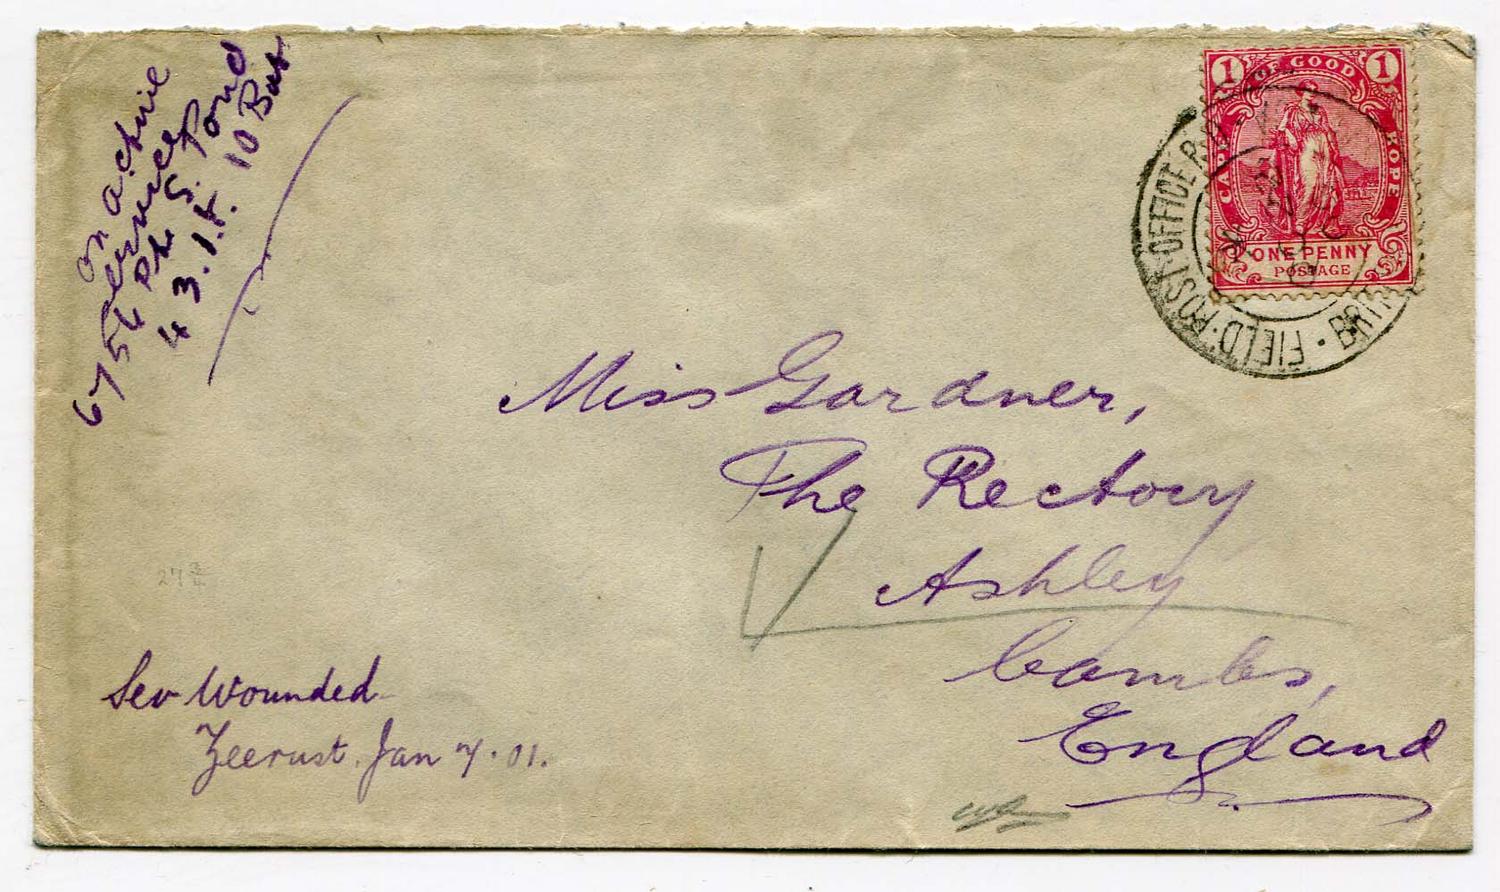 on active
service
6756 Pte S. Pond
43. I.Y. 10 Bat
1 CAPE OF GOOD HOPE 1
ONE PENNY
POSTAGE
FIELD · POST · OFFICE
BRIT
Miss Gardner,
The Rectory
Ashley
Cambs,
England
27
Sev Wounded
Zeerust. Jan 7. 01.